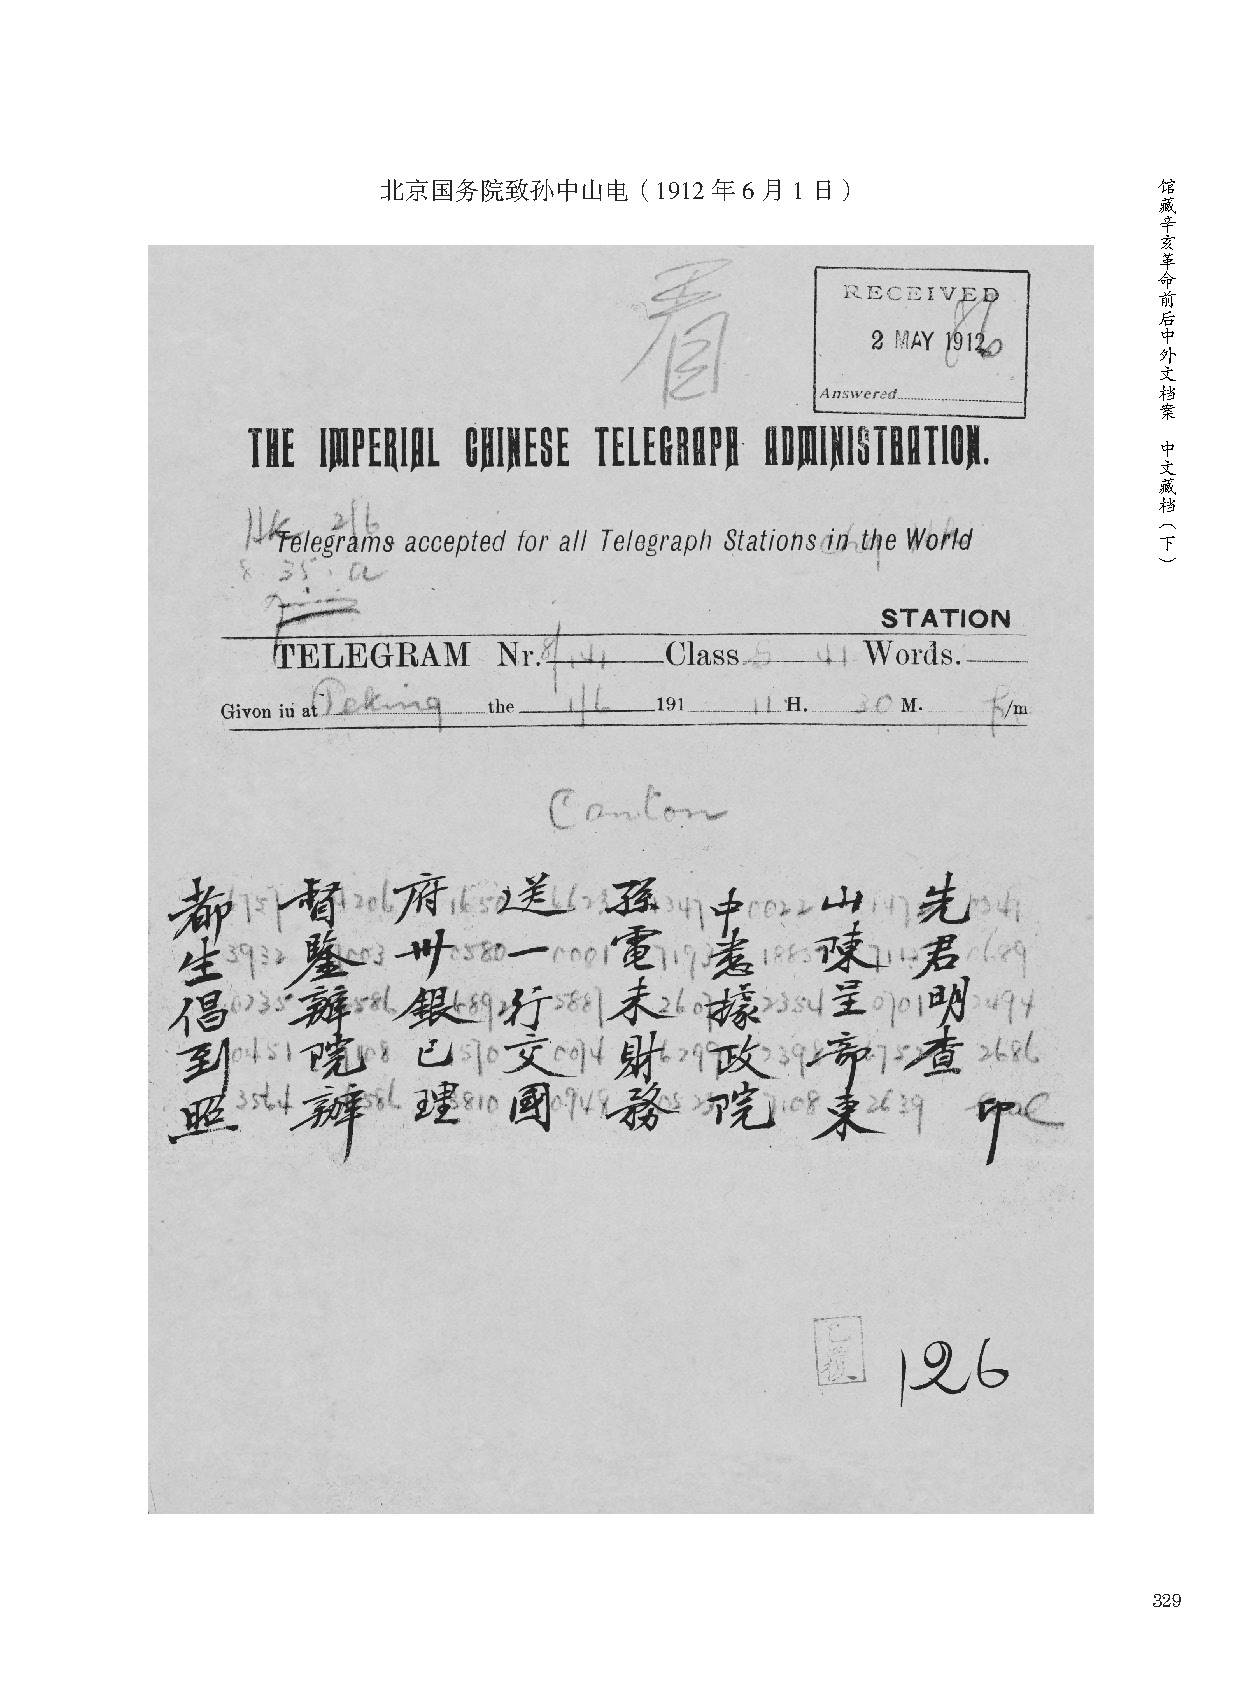 北京国务院致孙中山电（1912年6月1日）
馆藏辛亥革命前后中外文档案 中文藏档（下）
看
RECEIVED
2 MAY 1912
Answered
THE IMPERIAL CHINESE TELEGRAPH ADMINISTRATION.
Hk 2/6
Telegrams accepted for all Telegraph Stations in the World
8.35.a
STATION
TELEGRAM Nr. Class 41 Words.
Givon iu at Peking the 1/6 191 11 H. 30 M. /m
Canton
都督府送孫中山先
生鑒卅一電悉陳君
倡辦銀行未據呈明
到院已交財政部查
照辦理國務院東印
126
329